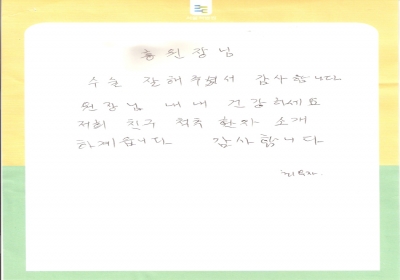 홍 원장님
수술 잘해주셔서 감사합니다
원장님 내내 건강하세요
저희 친구 척추 환자 소개
하게습니다 감사합니다